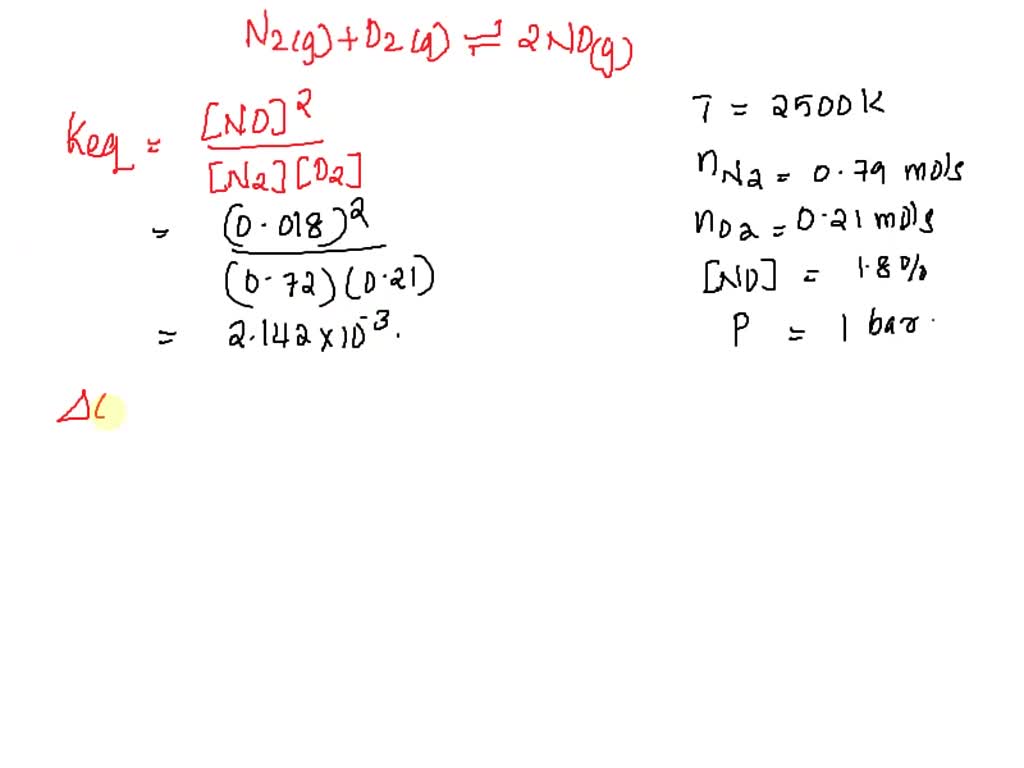 N₂(g) + O₂(g) ⇌ 2NO(g)
Keq = [NO]² / [N₂][O₂]
= (0.018)² / (0.72)(0.21)
= 2.142 × 10⁻³.
T = 2500K
nN₂ = 0.79 mols
nO₂ = 0.21 mols
[NO] = 1.8%
P = 1 bar.
Δ(